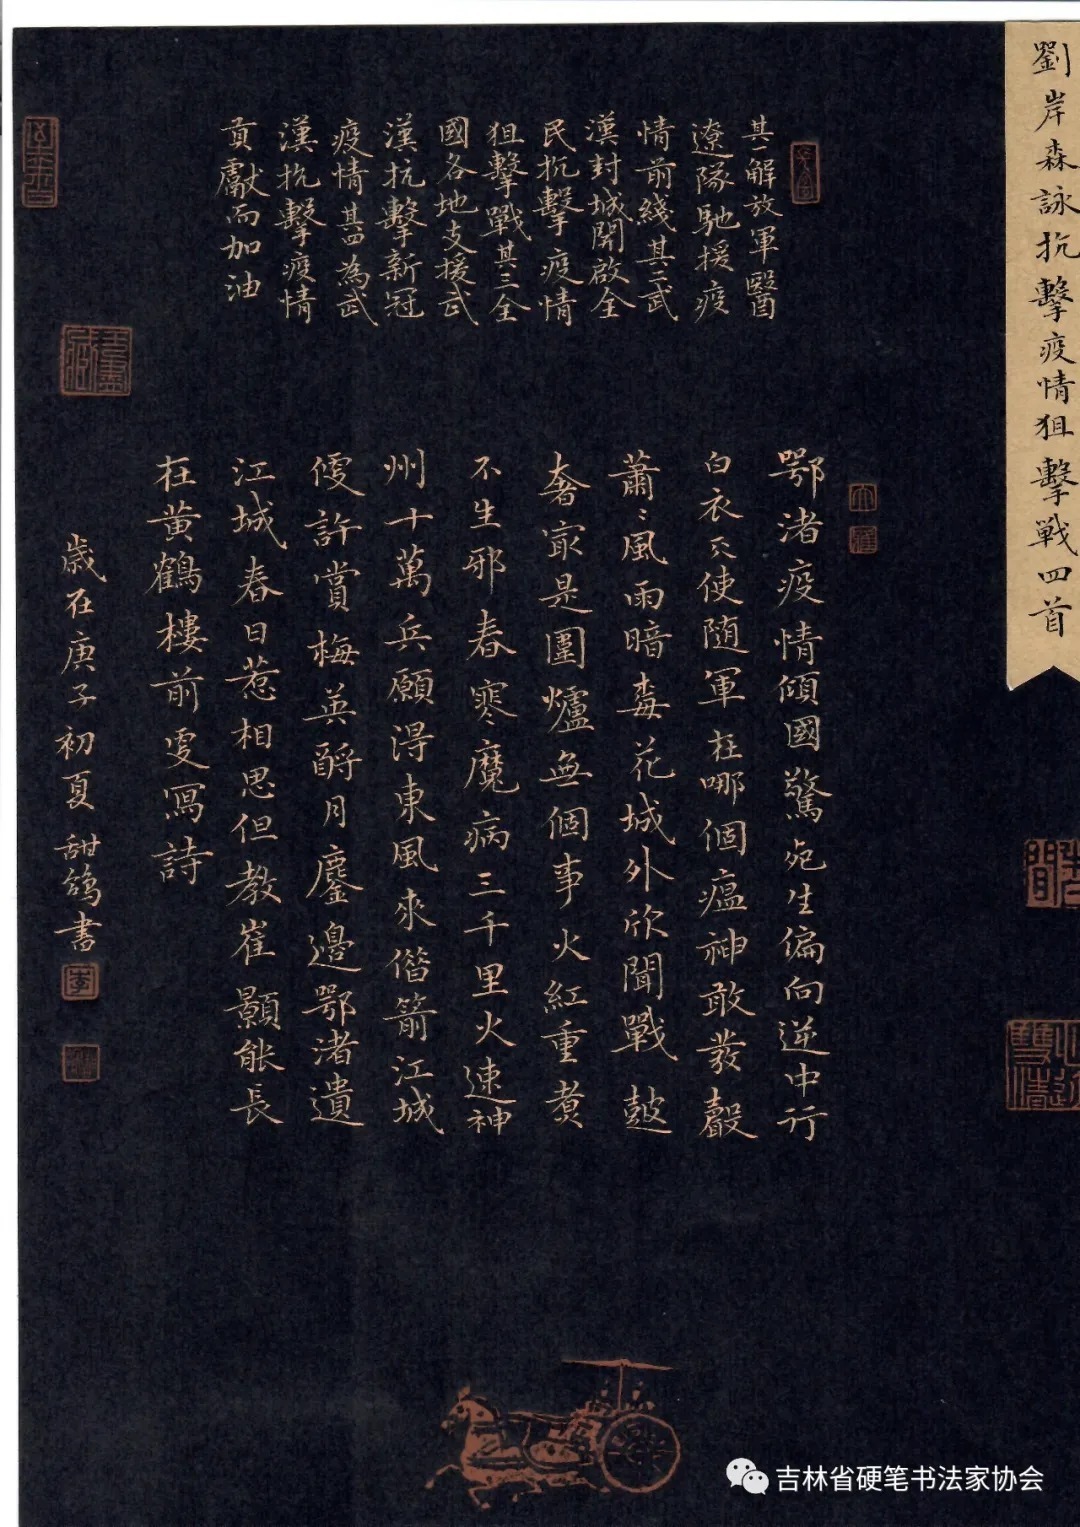 劉岸森詠抗擊疫情狙擊戰四首
其一解放軍醫
遼隊馳援疫
情前綫其二武
漢封城開啟全
民抗擊疫情
狙擊戰其三全
國各地支援武
漢抗擊新冠
疫情其四為武
漢抗擊疫情
貢獻而加油
鄂渚疫情傾國驚死生偏向逆中行
白衣天使随軍在哪個瘟神敢發聲
蕭〻風雨暗毒花城外欣聞戰鼓
奢寂是圍爐無個事火紅重煮
不生邪春寒魔病三千里火速神
州十萬兵願得東風來借箭江城
優許賞梅英酹月廬邊鄂渚遺
江城春日惹相思但教崔顥能長
在黃鶴樓前更寫詩
歲在庚子初夏甜鴿書
李
吉林省硬笔书法家协会